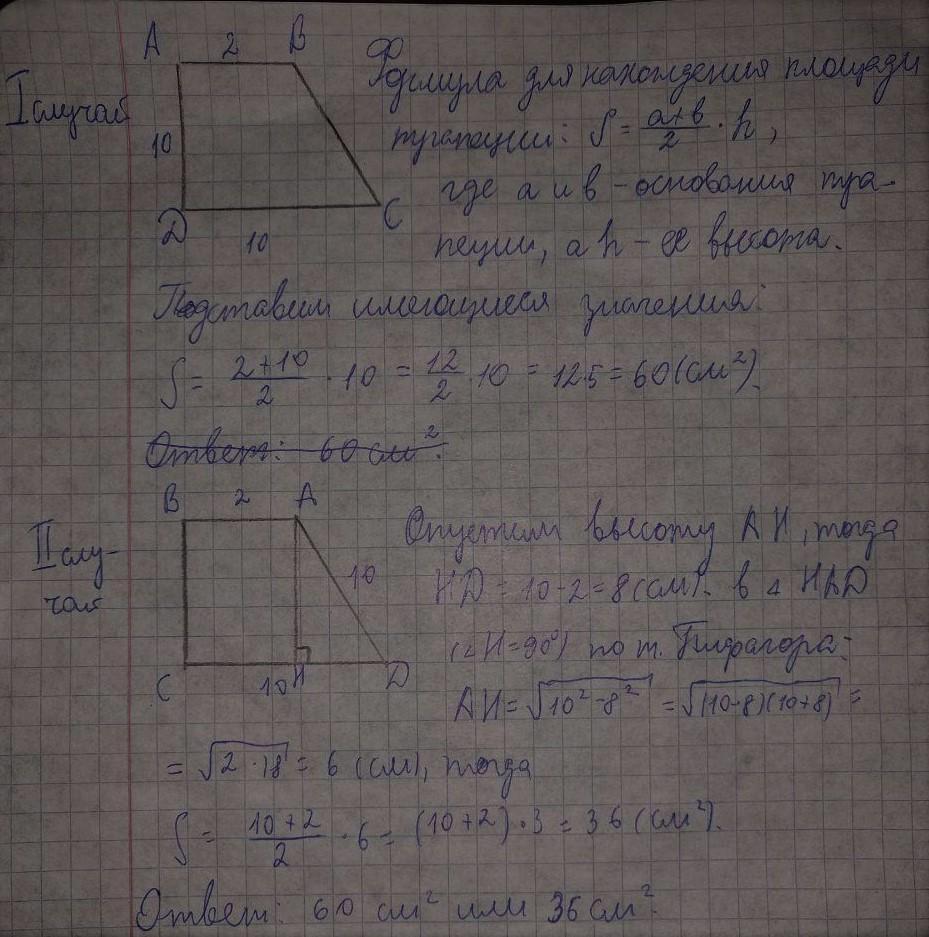 A 2 B
I случай
10
D 10 C
Формула для нахождения площади
трапеции: S = \frac{a+b}{2} · h,
где a и b - основания тра-
пеции, а h - её высота.
Подставим имеющиеся значения:
S = \frac{2+10}{2} · 10 = \frac{12}{2} · 10 = 12·5 = 60 (см²).
Ответ: 60 см².
B 2 A
II слу-
чай
10
C 10 H D
Опустим высоту AH, тогда
HD = 10-2=8(см). В △ HAD
(∠H=90°) по т. Пифагора:
AH = √(10² - 8²) = √((10-8)(10+8)) =
= √(2 · 18) = 6 (см), тогда
S = \frac{10+2}{2} · 6 = (10+2) · 3 = 36 (см²).
Ответ: 60 см² или 36 см².